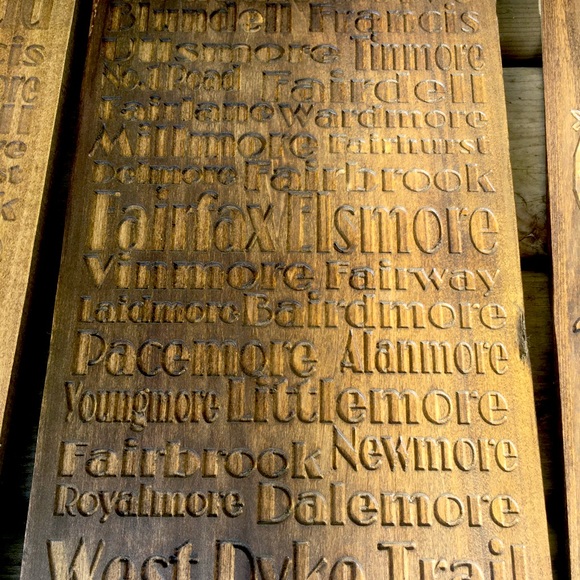 Blundell Francis
Dusmore Tinmore
No. 1 Road Fairdell
Fairlane Wardmore
Millmore Fairhurst
Delmore Fairbrook
Fairfax Elsmore
Vinmore Fairway
Laidmore Bairdmore
Pacemore Alanmore
Youngmore Littlemore
Fairbrook Newmore
Royalmore Dalemore
West Dyke Trail